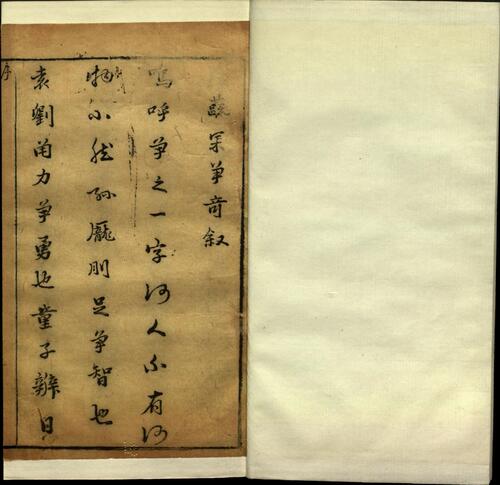 蔬果爭奇叙
嗚呼爭之一字何人不有何
物不然孫龐則足爭智也
袁劉角力爭勇也童子辯日
序